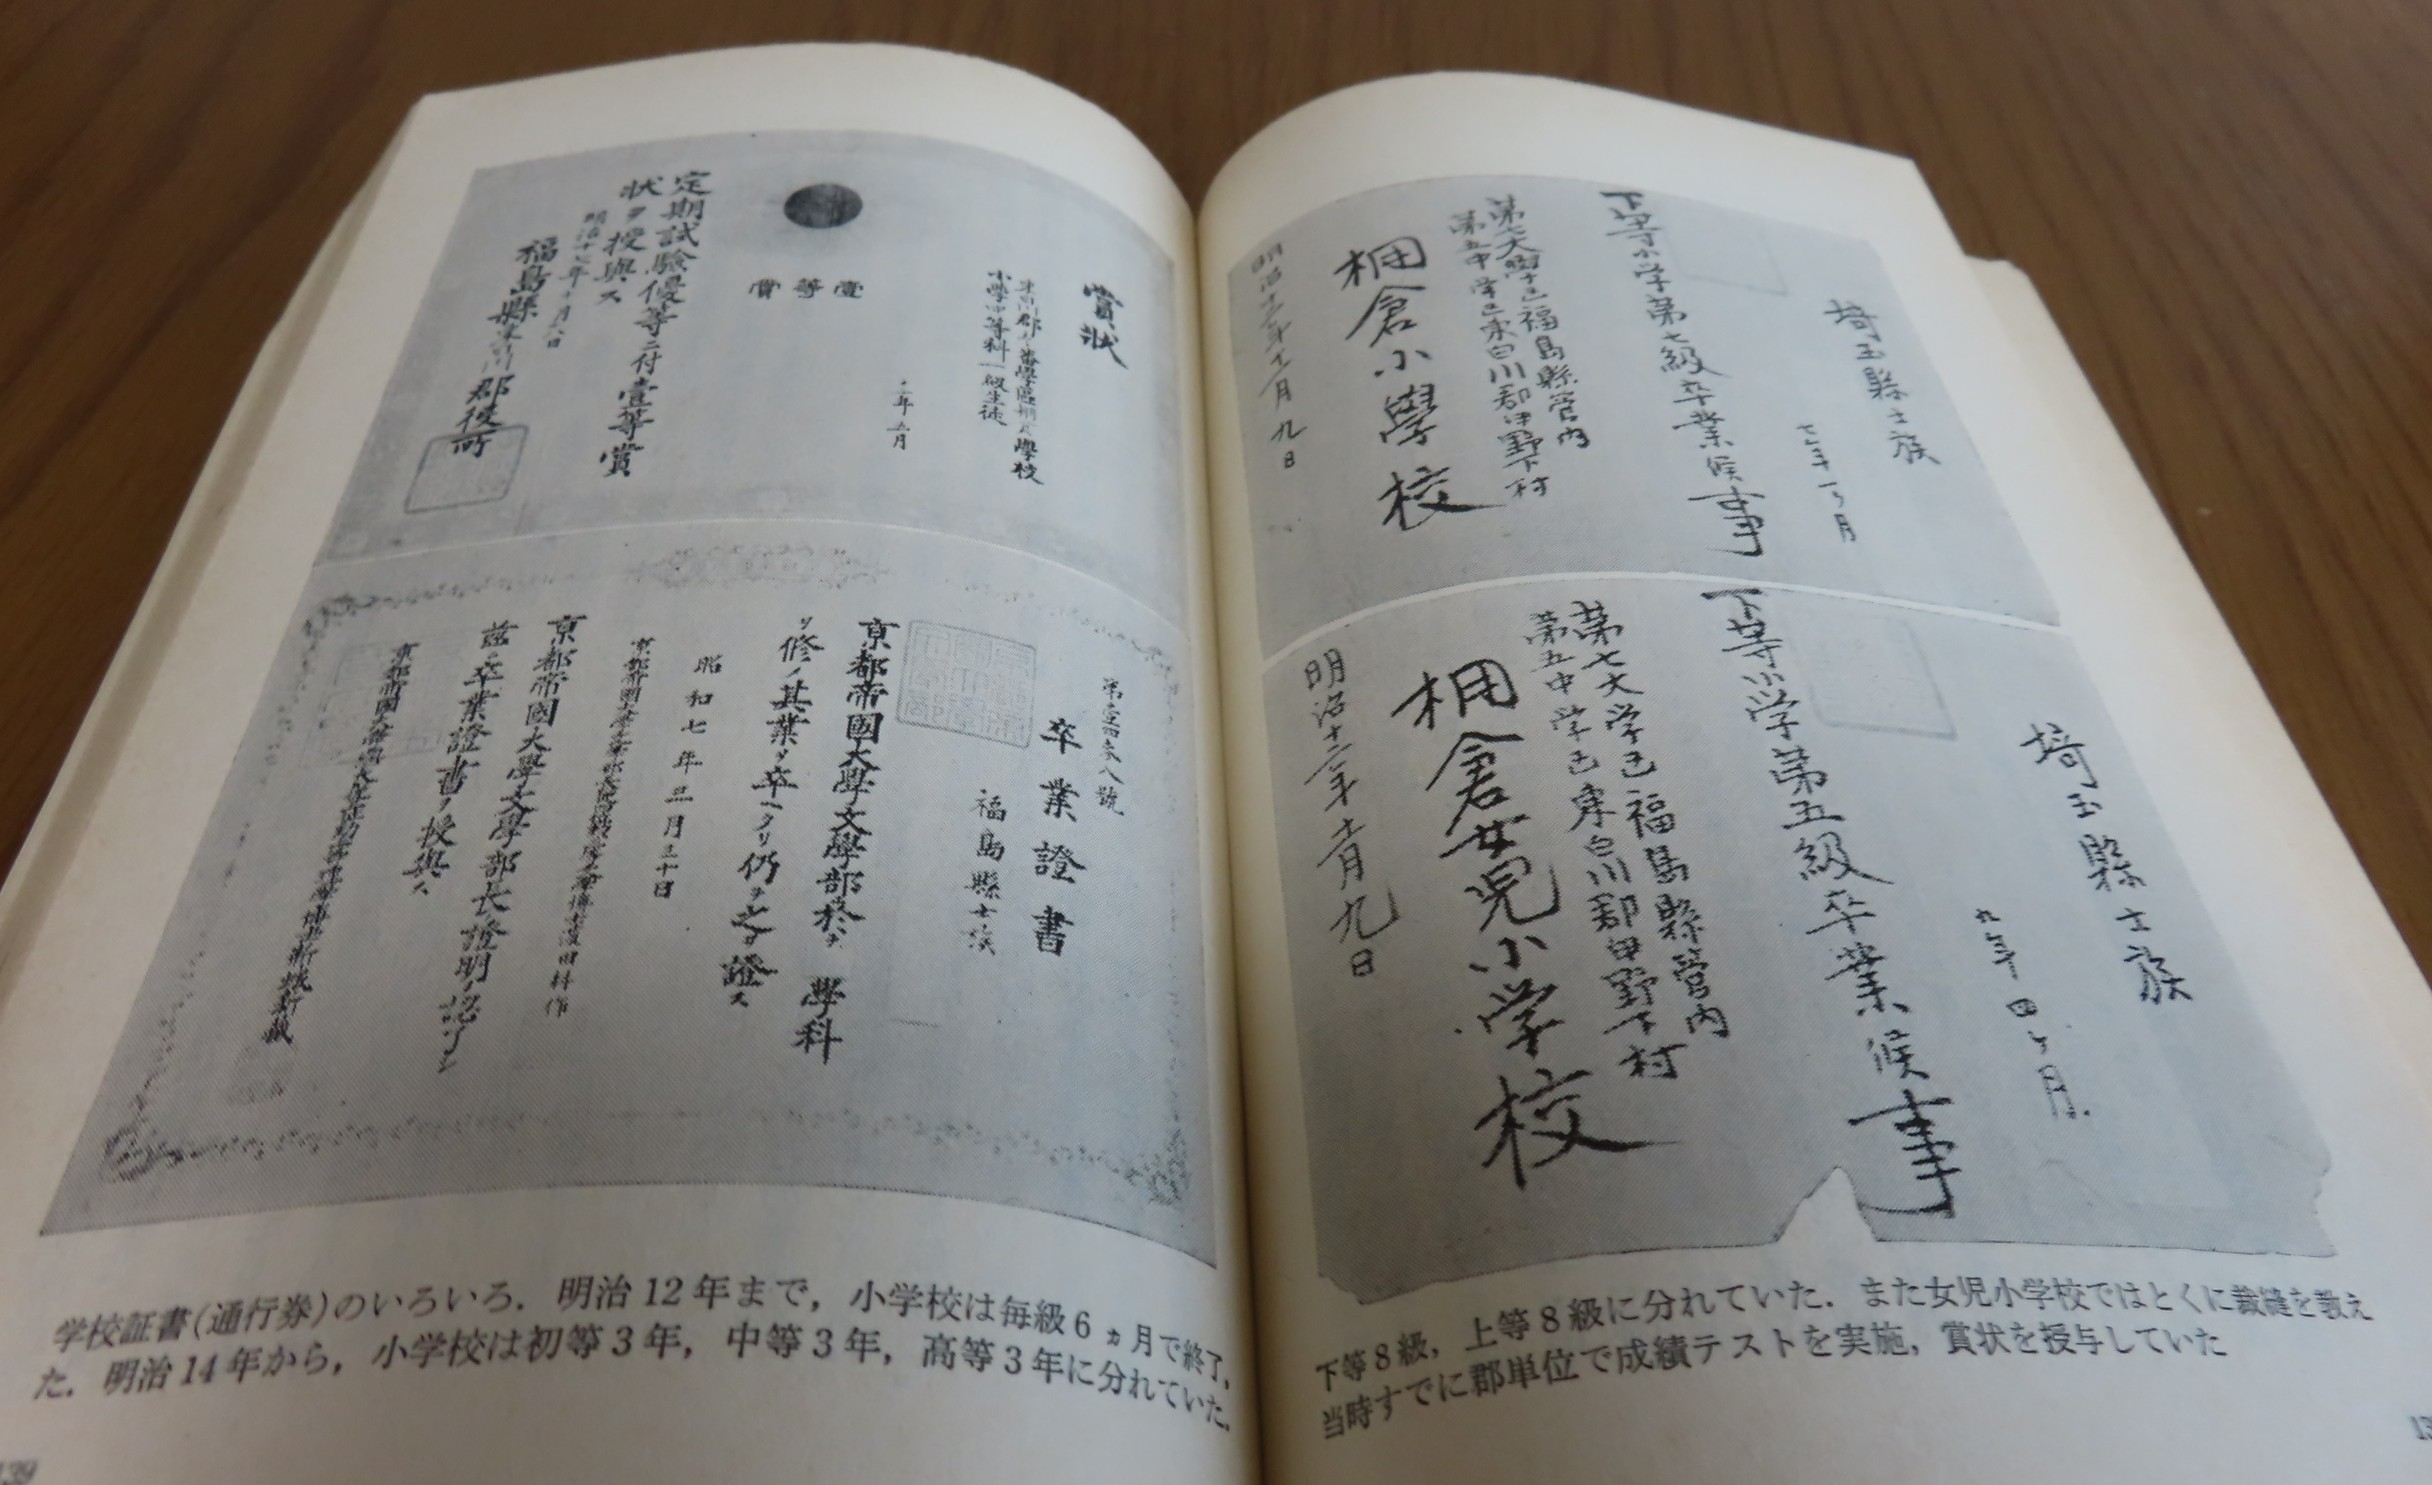 埼玉縣士族
七年一ヶ月
下等小学第七級卒業候事
第七大學区福島縣管内
第五中学区東白川郡伊野下村
棚倉小學校
明治十二年十二月九日
埼玉縣士族
九年四ヶ月
下等小学第五級卒業候事
第七大学区福島縣管内
第五中学区東白川郡伊野下村
棚倉女児小学校
明治十二年十二月九日
賞状
小學中等科一級生徒
壹等賞
定期試驗優等ニ付壹等賞
状ヲ授與ス
福島縣東白川郡役所
卒業證書
福島縣士族
京都帝國大學文學部ニ於テ 學科
ヲ修メ其業ヲ卒ヘタリ仍テ之ヲ證ス
昭和七年三月三十日
京都帝國大學文學部長ノ證明ヲ認メ
茲ニ卒業證書ヲ授與ス
学校証書(通行券)のいろいろ．明治12年まで，小学校は毎級6ヵ月で終了，
下等8級，上等8級に分れていた．また女児小学校ではとくに裁縫を教え
た．明治14年から，小学校は初等3年，中等3年，高等3年に分れていた．
当時すでに郡単位で成績テストを実施，賞状を授与していた
139